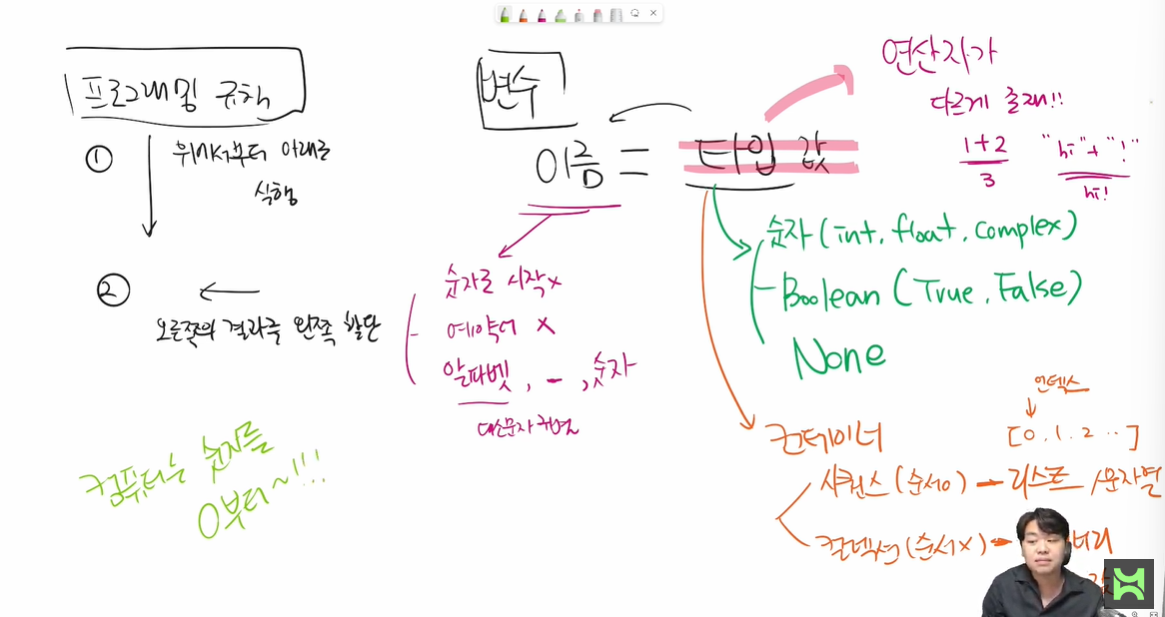 프로그래밍 규칙
① 위에서부터 아래로
실행
② ←
오른쪽의 결과를 왼쪽 할당
컴퓨터는 숫자를
0부터~!!!
변수
이름 = 타입 값
숫자로 시작 x
예약어 x
알파벳, _, 숫자
대소문자 구분
연산자가
다르게 존재!!
1+2
3
"hi"+"!"
hi!
숫자(int, float, complex)
Boolean (True, False)
None
컨테이너
인덱스
[0, 1, 2 ..]
시퀀스 (순서o) - 리스트 / 문자열
컬렉션 (순서x) -